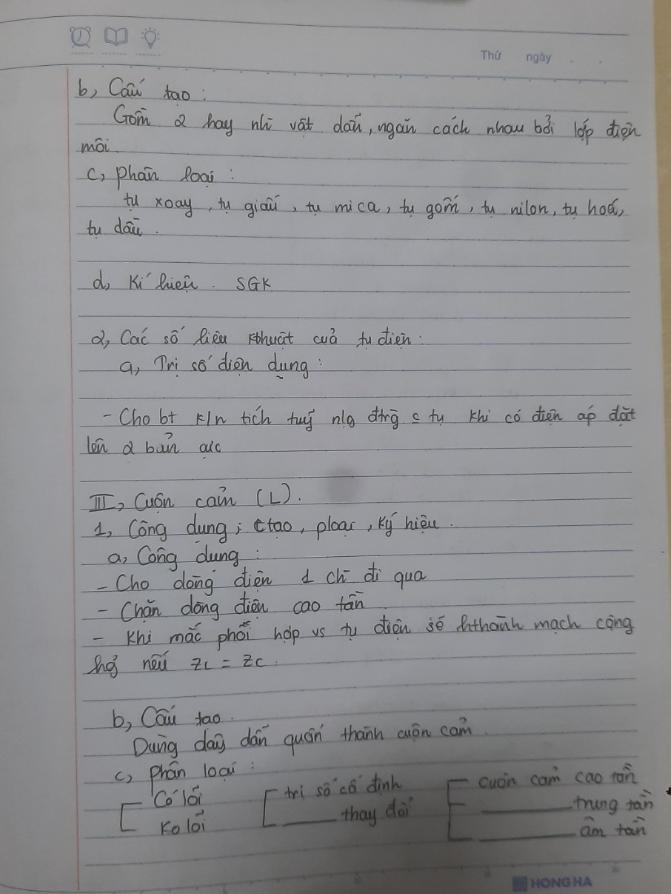 Thứ ngày
b, Cấu tạo :
Gồm 2 hay nh` vật dẫn, ngăn cách nhau bởi lớp điện
môi.
c, phân loại :
tụ xoay, tụ giấy, tụ mica, tụ gốm, tụ nilon, tụ hoá,
tụ dầu.
d, Kí hiệu. SGK
2, Các số liệu kthuật của tụ điện :
a, Trị số điện dụng :
- Cho bt k/n tích tuỹ nlg đtrg c tụ khi có điện áp đặt
lên 2 bản cực
III, Cuộn cảm (L).
1, Công dụng ; ctạo, ploại, ký hiệu.
a, Công dụng :
- Cho dòng điện 1 chì đi qua
- Chặn dòng điện cao tần
- Khi mắc phối hợp vs tụ điện sẽ hthành mạch cộng
hg nếu ZL = ZC.
b, Cấu tạo.
Dùng dây dẫn quấn thành cuộn cảm.
c, phân loại :
Có lõi
Ko lõi
trị số cố định
____ thay đổi
cuộn cảm cao tần
____ trung tần
____ âm tần
HONG HA